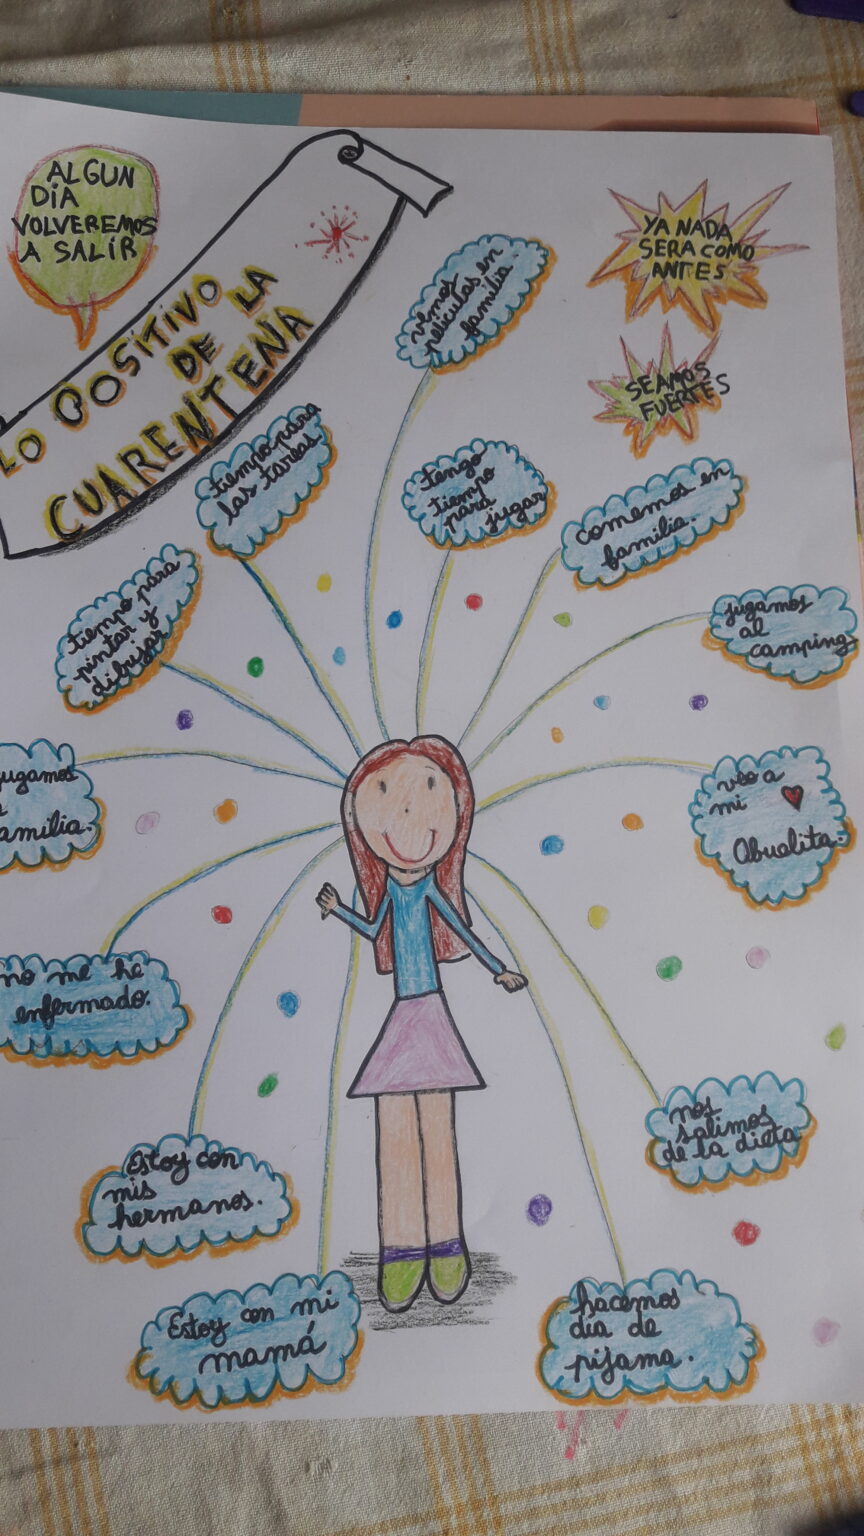 ALGUN
DÍA
VOLVEREMOS
A SALÍR
LO POSITIVO
DE LA
CUARENTENA
YA NADA
SERA COMO
ANTES
SEAMOS
FUERTES
vimos
peliculas en
familia.
tiempo para
las tareas
tengo
tiempo
para
jugar
comemos en
familia.
tiempo para
pintar y
dibujar
jugamos
al
camping
jugamos
familia.
veo a
mi
Abuelita.
no me he
enfermado.
nos
salimos
de la dieta
Estoy con
mis
hermanos.
Estoy con mi
mamá
hacemos
dia de
pijama.